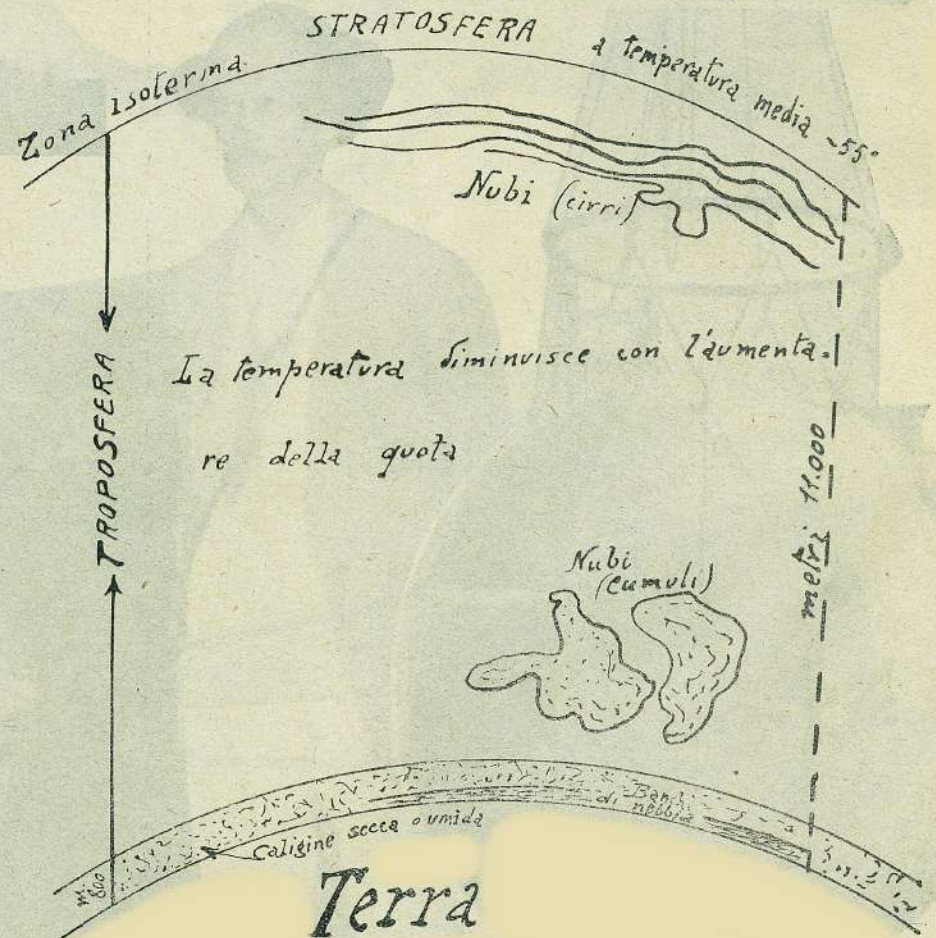 STRATOSFERA
Zona isoterma
a temperatura media -55°
Nubi (cirri)
La temperatura diminuisce con l'aumenta-
re della quota
TROPOSFERA
metri 11.000
Nubi
(cumuli)
Banchi
di nebbia
Caligine secca o umida
m. 800
Terra